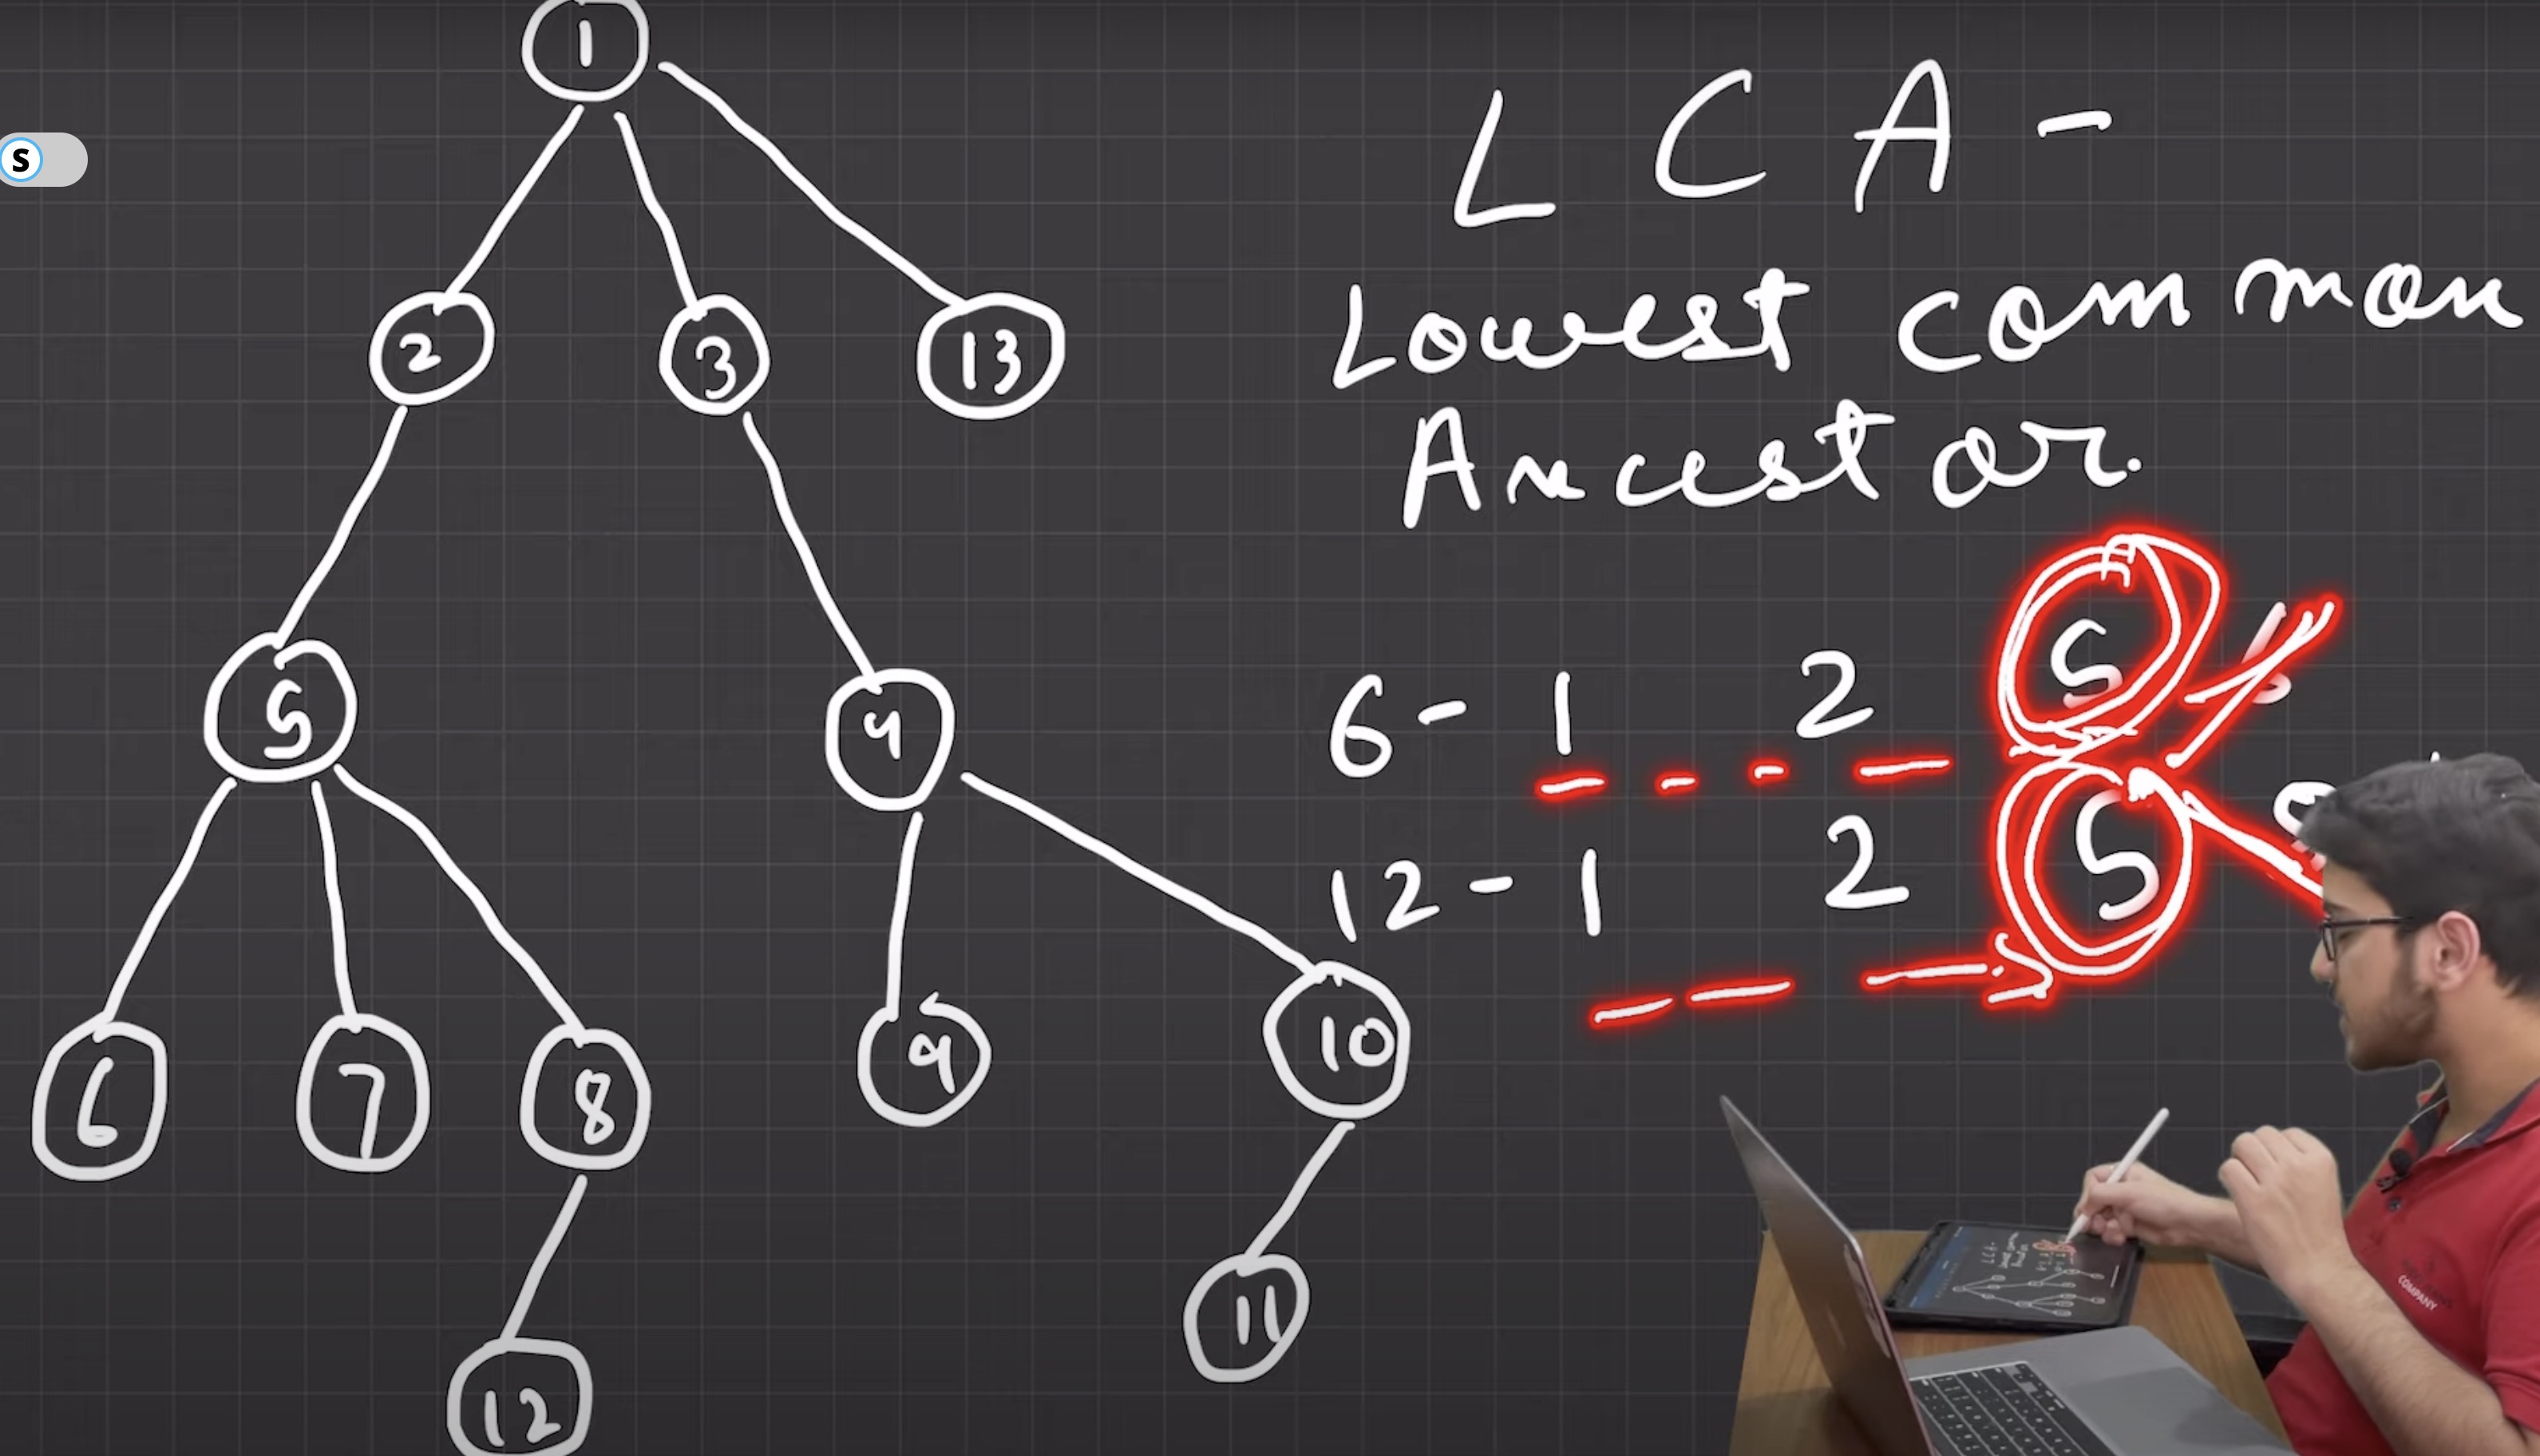 1
S
2 3 13
5 4
6 7 8 9 10
12 11
L C A -
Lowest common
Ancestor.
6 - 1 2 5
12 - 1 2 5
COMPANY